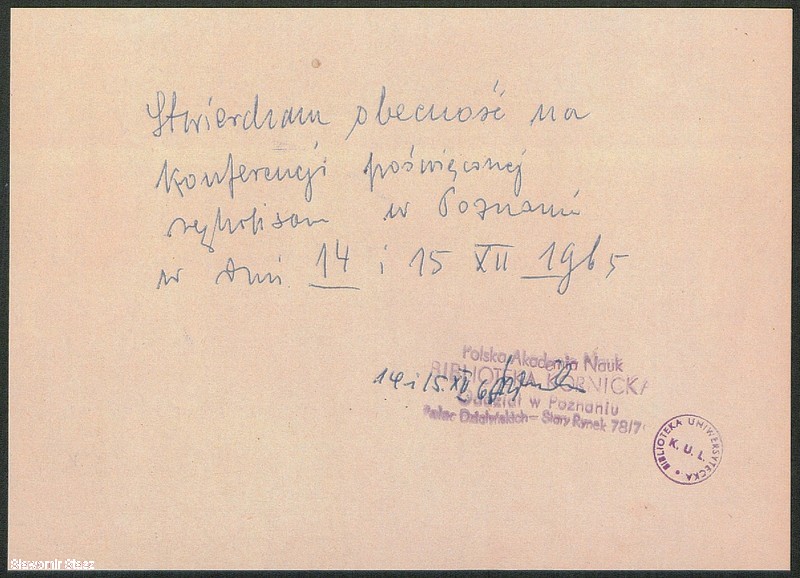 Stwierdzam obecność na
konferencji poświęconej
rękopisom w Poznaniu
w dni 14 i 15 XII 1965
Polska Akademia Nauk
BIBLIOTEKA KÓRNICKA
14 i 15.XII 65
Oddział w Poznaniu
Pałac Działyńskich - Stary Rynek 78/7
BIBLIOTEKA UNIWERSYTECKA
K. U. L.